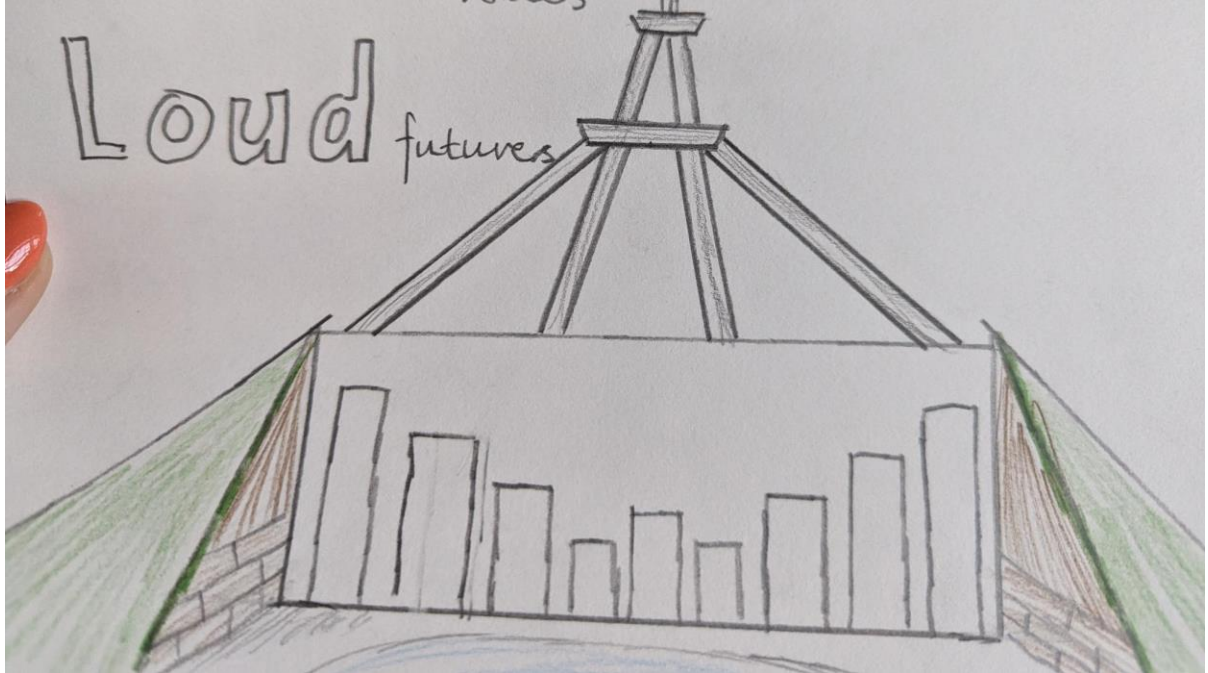 Loud futures